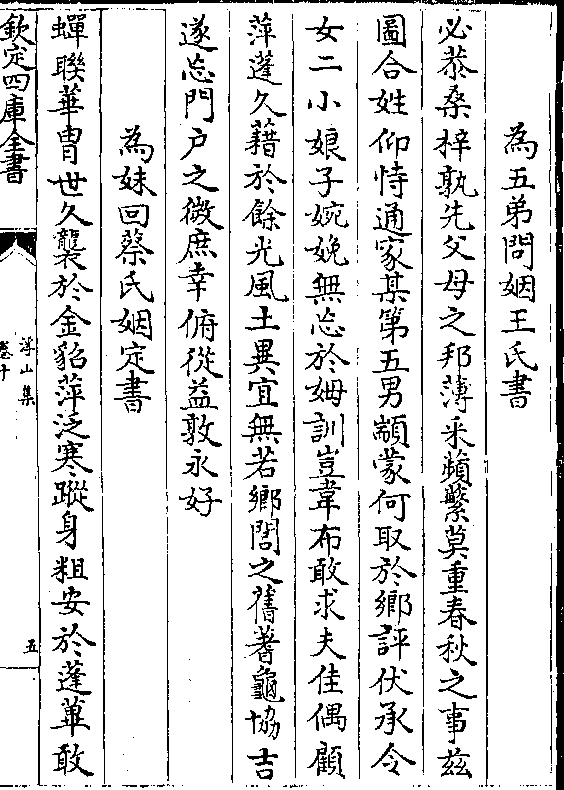 為五弟問姻王氏書
必恭桑梓孰先父母之邦薄采蘋蘩莫重春秋之事茲
圖合姓仰恃通家某第五男顓蒙何取於鄉評伏承令
女二小娘子婉娩無忘於姆訓豈韋布敢求夫佳偶顧
萍蓬久藉於餘光風土異宜無若鄉閭之舊蓍龜協吉
遂忘門戶之微庶幸俯從益敦永好
為妹回蔡氏姻定書
蟬聯華胄世久襲於金貂萍泛寒蹤身粗安於蓬蓽敢
欽定四庫全書
浮山集
卷十
五